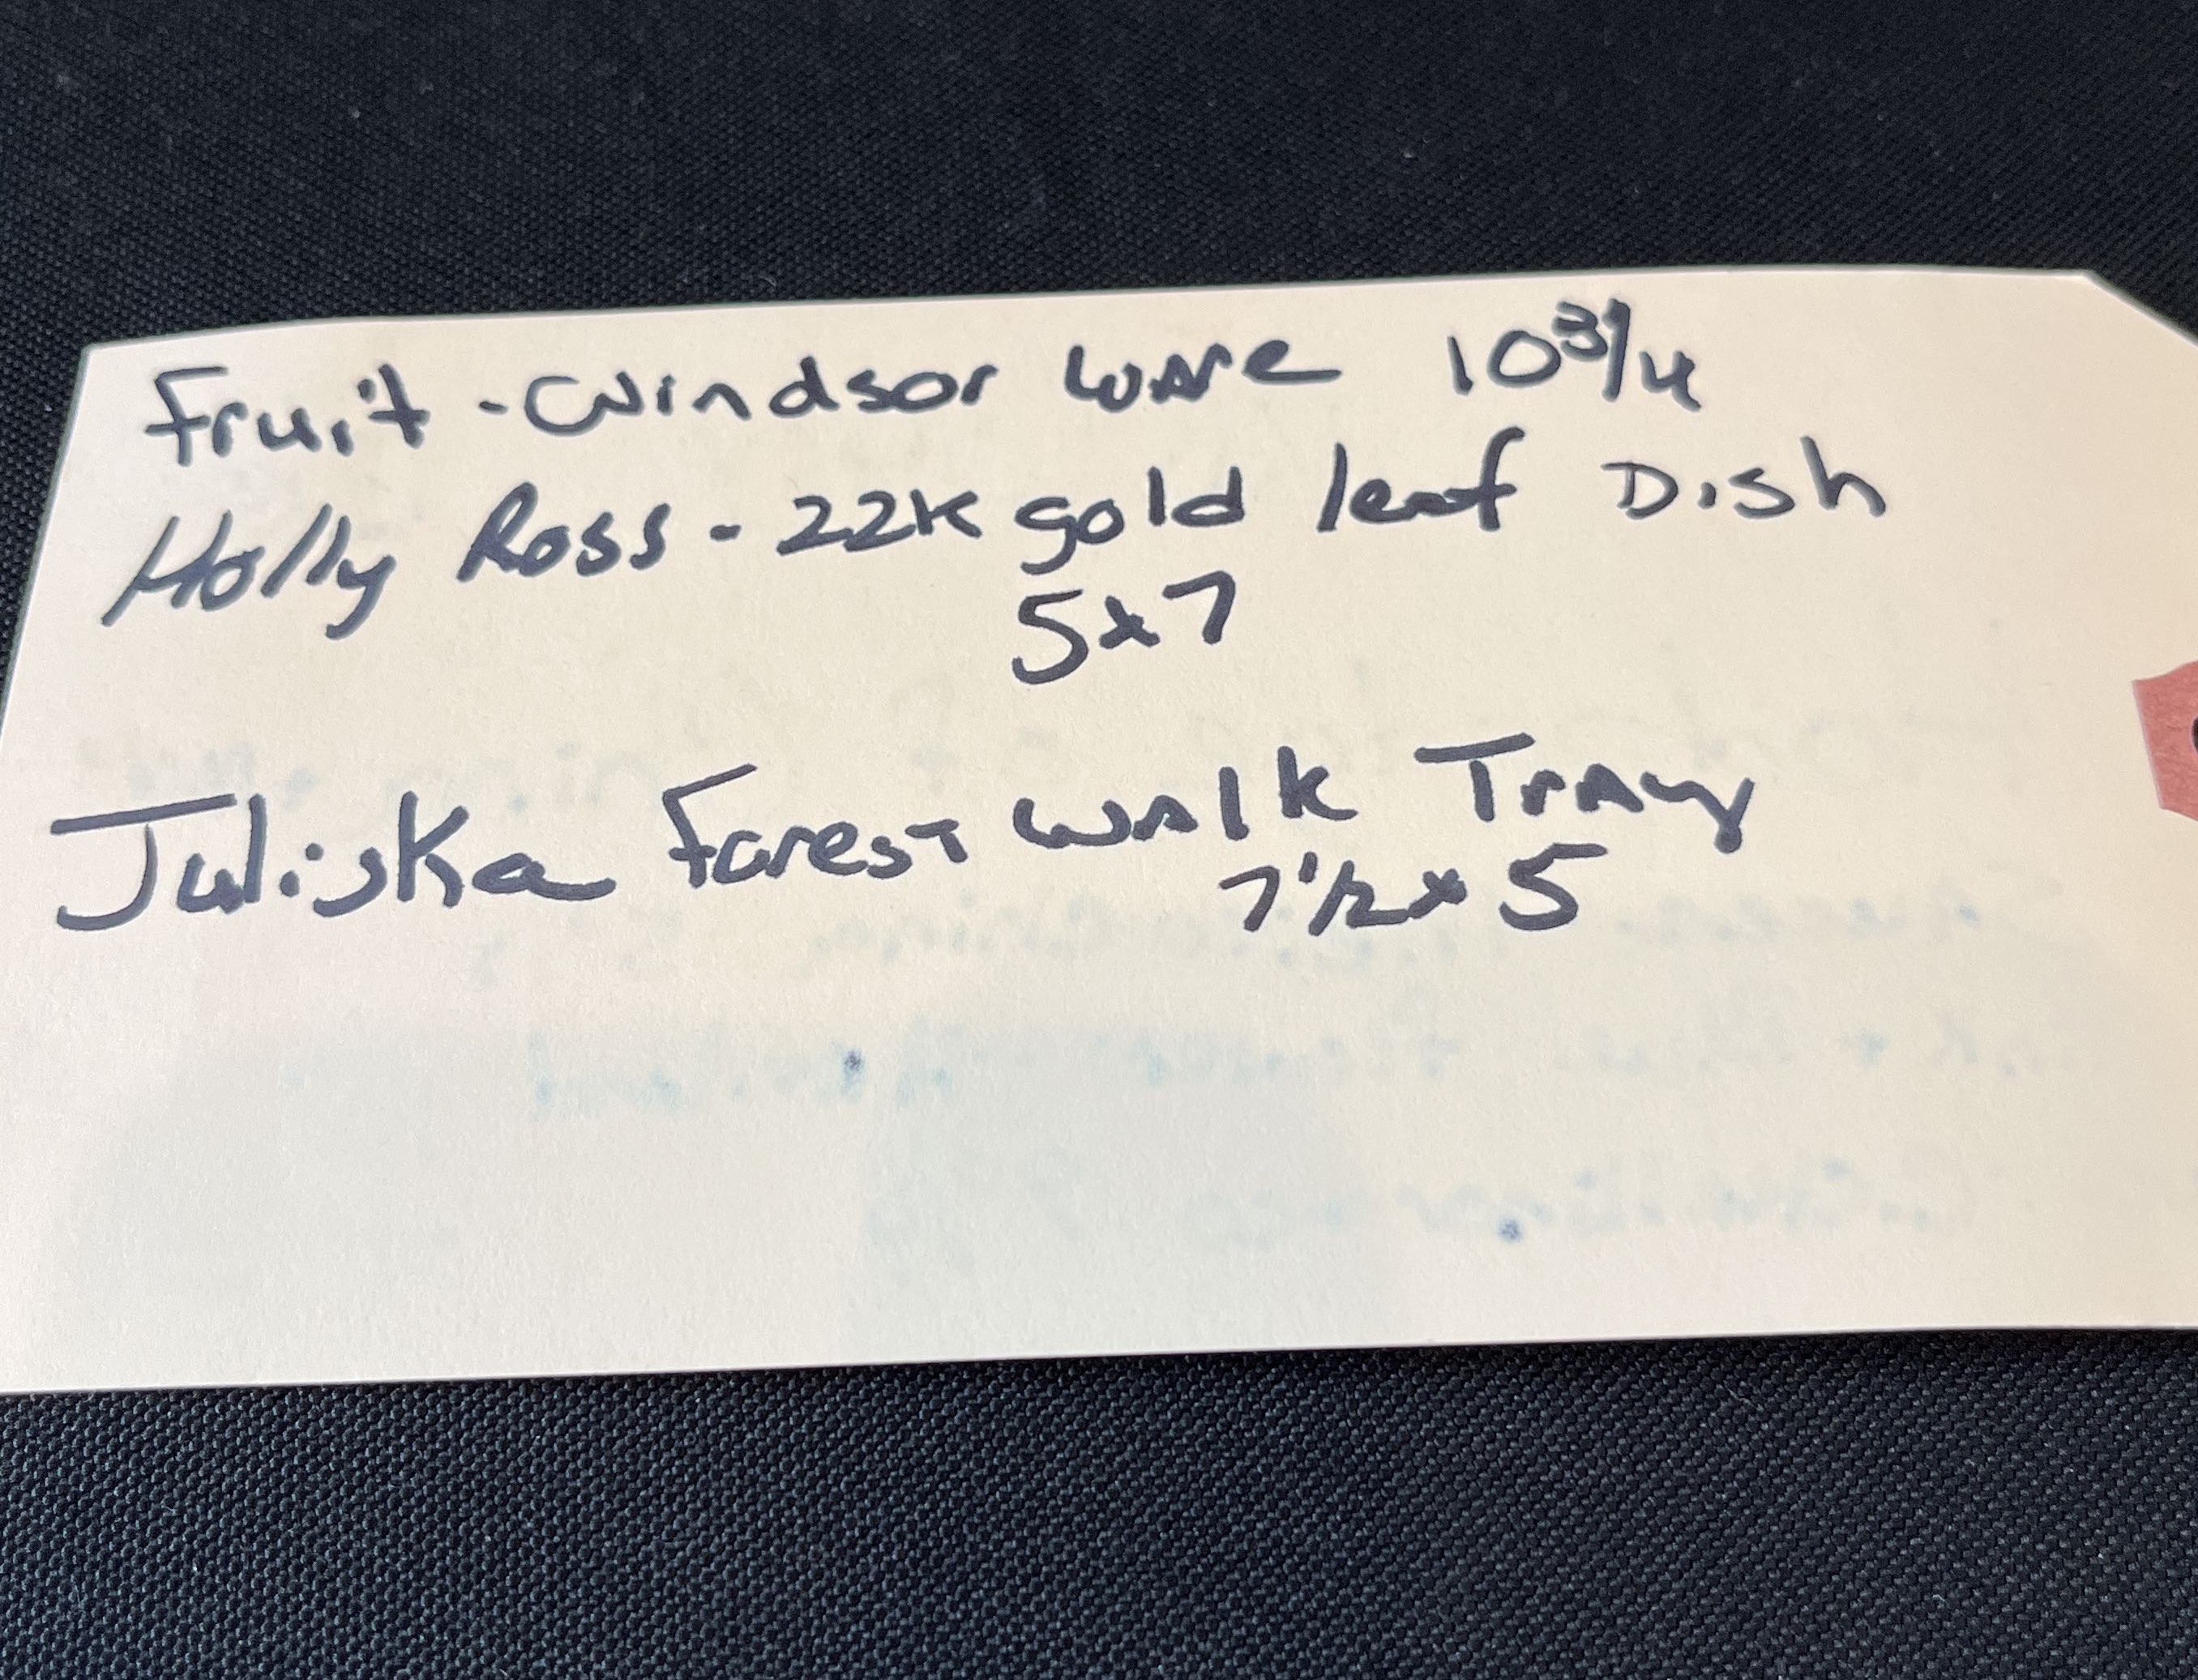 Fruit - Windsor Ware 10 3/4
Holly Ross - 22K gold leaf Dish
5x7
Juliska Forest Walk Tray
7 1/2 x 5